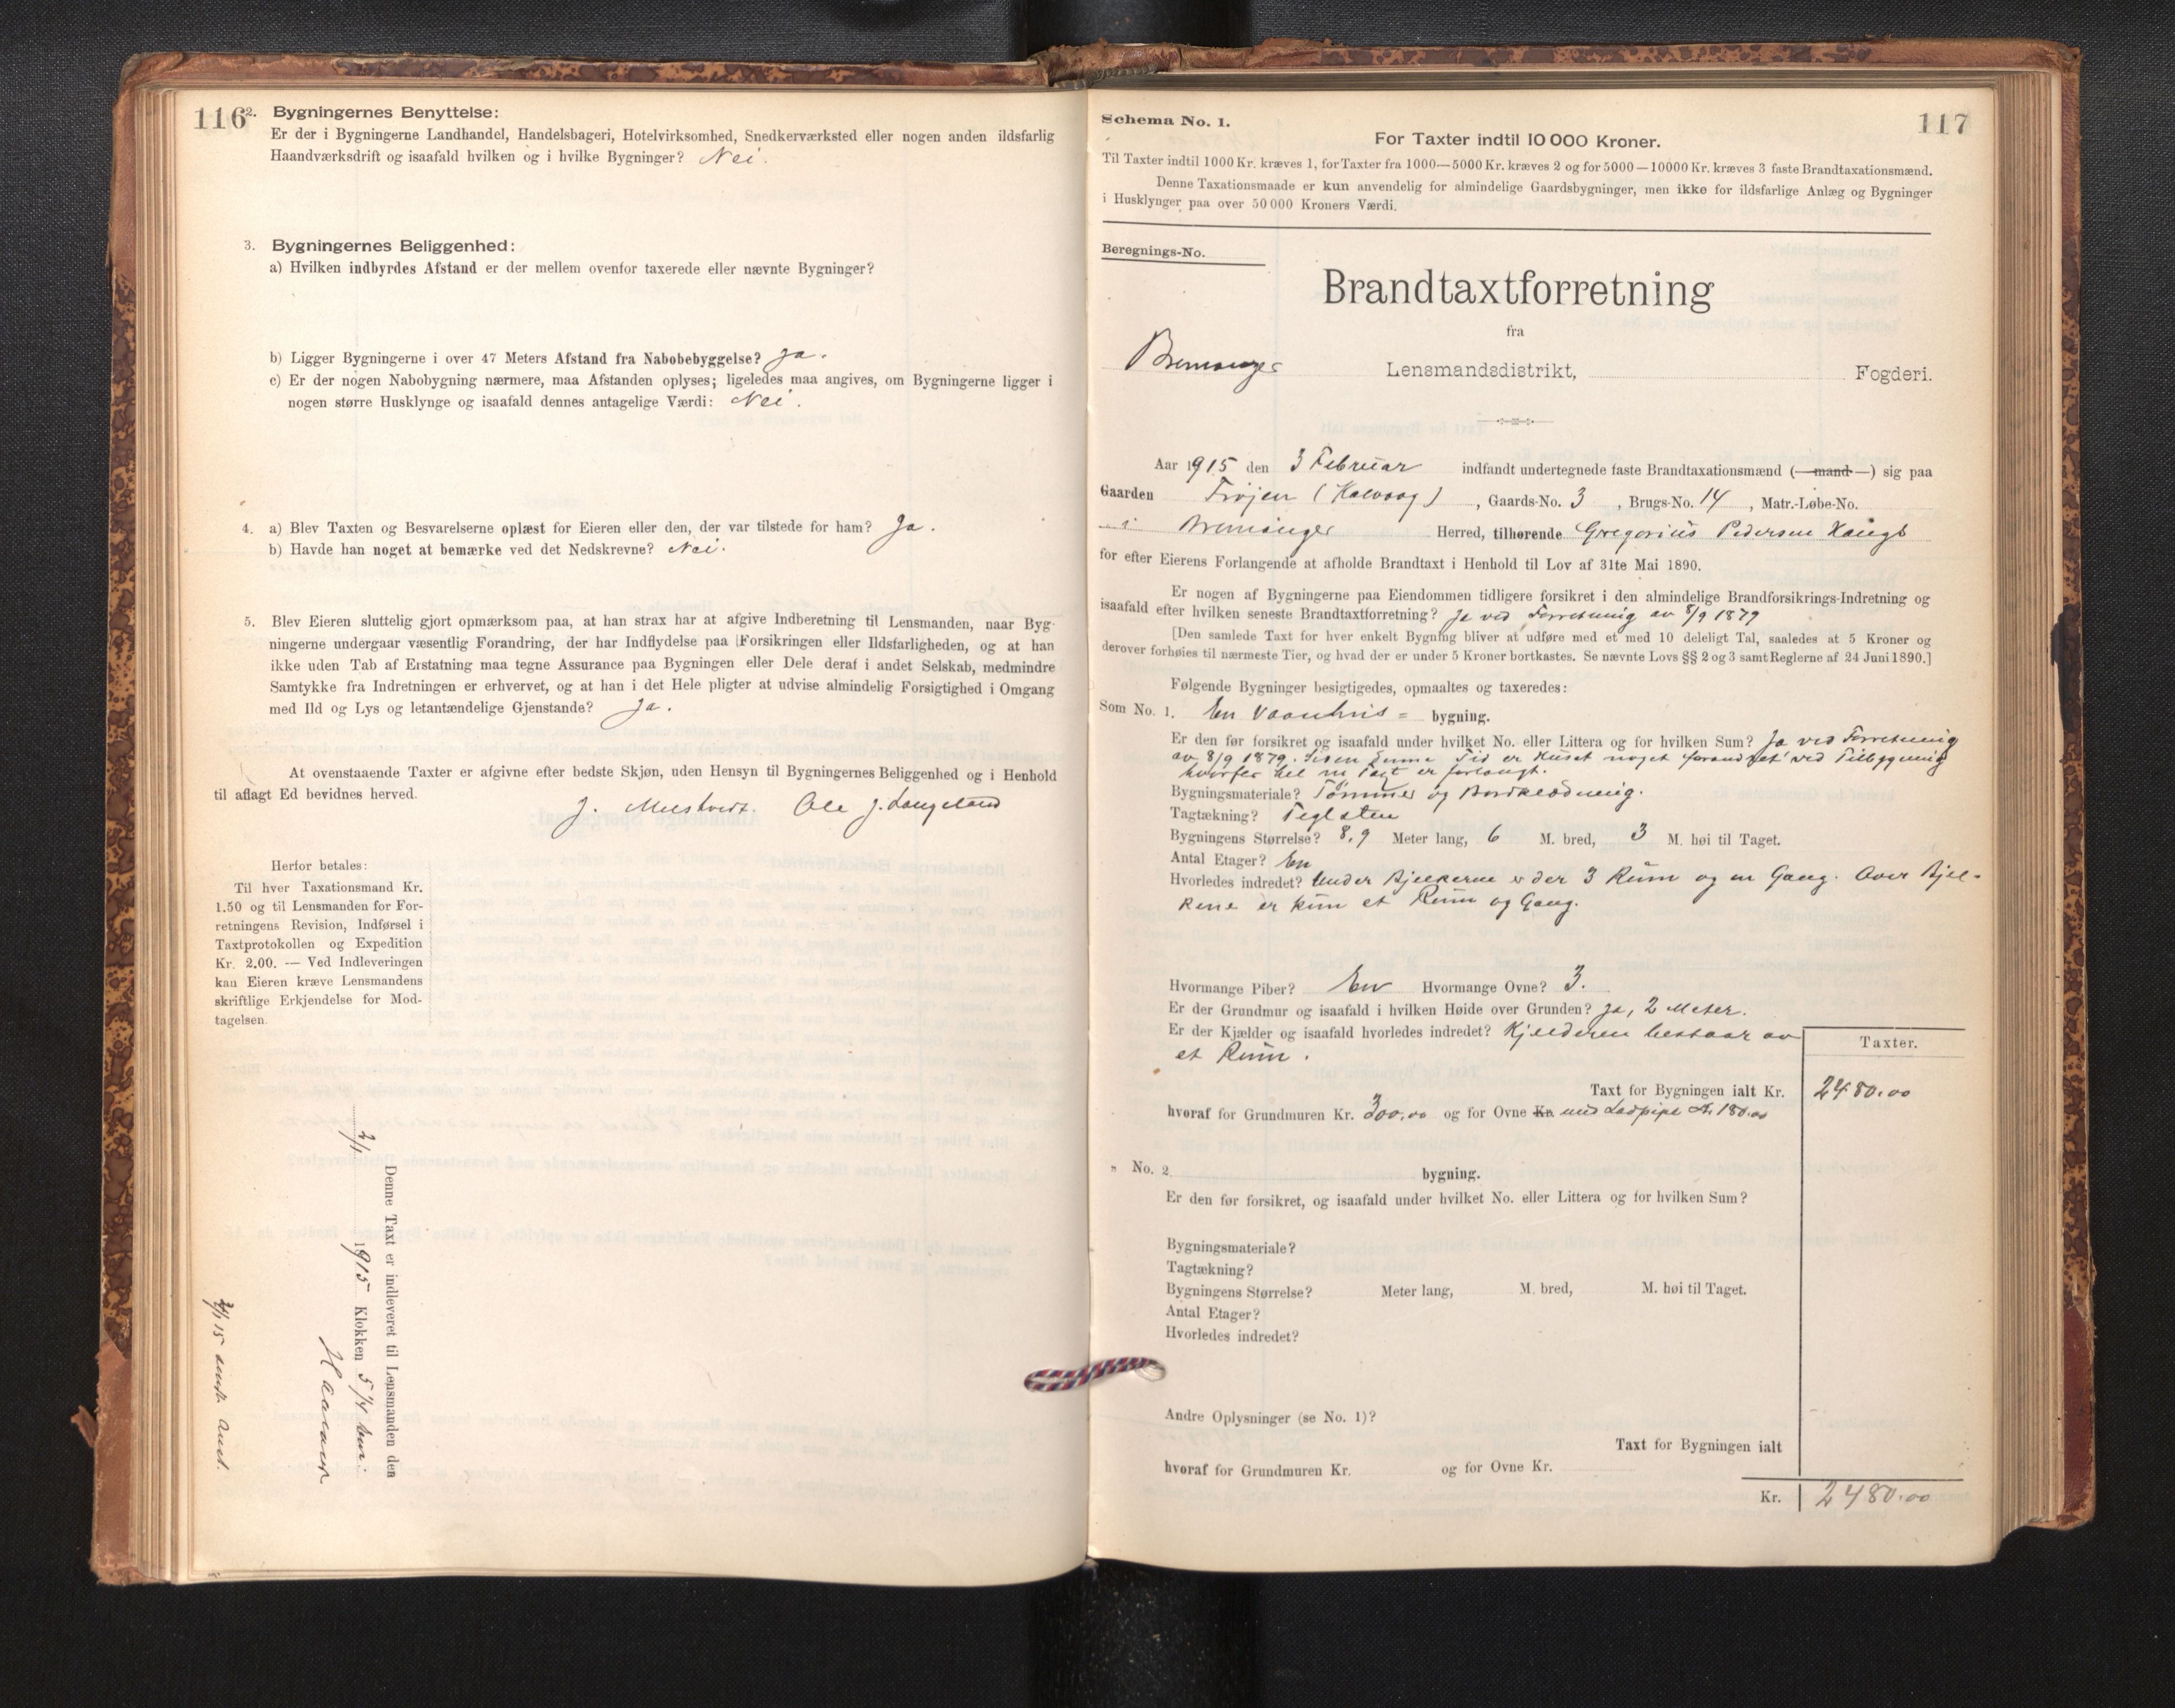 116
2. Bygningernes Benyttelse:
Er der i Bygningerne Landhandel, Handelsbageri, Hotelvirksomhed, Snedkerværksted eller nogen anden ildsfarlig
Haandværksdrift og isaafald hvilken og i hvilke Bygninger? Nei.
3. Bygningernes Beliggenhed:
a) Hvilken indbyrdes Afstand er der mellem ovenfor taxerede eller nævnte Bygninger?
b) Ligger Bygningerne i over 47 Meters Afstand fra Nabobebyggelse? Ja.
c) Er der nogen Nabobygning nærmere, maa Afstanden oplyses; ligeledes maa angives, om Bygningerne ligger i
nogen større Husklynge og isaafald dennes antagelige Værdi: Nei.
4. a) Blev Taxten og Besvarelserne oplæst for Eieren eller den, der var tilstede for ham? Ja.
b) Havde han noget at bemærke ved det Nedskrevne? Nei.
5. Blev Eieren sluttelig gjort opmærksom paa, at han strax har at afgive Indberetning til Lensmanden, naar Byg-
ningerne undergaar væsentlig Forandring, der har Indflydelse paa Forsikringen eller Ildsfarligheden, og at han
ikke uden Tab af Erstatning maa tegne Assurance paa Bygningen eller Dele deraf i andet Selskab, medmindre
Samtykke fra Indretningen er erhvervet, og at han i det Hele pligter at udvise almindelig Forsigtighed i Omgang
med Ild og Lys og letantændelige Gjenstande? Ja.
At ovenstaaende Taxter er afgivne efter bedste Skjøn, uden Hensyn til Bygningernes Beliggenhed og i Henhold
til aflagt Ed bevidnes herved.
J. Ole J. Langeland
Herfor betales:
Til hver Taxationsmand Kr.
1.50 og til Lensmanden for For-
retningens Revision, Indførsel i
Taxtprotokollen og Expedition
Kr. 2.00. — Ved Indleveringen
kan Eieren kræve Lensmandens
skriftlige Erkjendelse for Mod-
tagelsen.
Denne Taxt er indleveret til Lensmanden den
1915 Klokken 5 1/4
Schema No. 1.
117
For Taxter indtil 10 000 Kroner.
Til Taxter indtil 1000 Kr. kræves 1, for Taxter fra 1000—5000 Kr. kræves 2 og for 5000—10000 Kr. kræves 3 faste Brandtaxationsmænd.
Denne Taxationsmaade er kun anvendelig for almindelige Gaardsbygninger, men ikke for ildsfarlige Anlæg og Bygninger
i Husklynger paa over 50 000 Kroners Værdi.
Beregnings-No.
Brandtaxtforretning
fra
Bremanger Lensmandsdistrikt, Fogderi.
Aar 1915 den 3 Februar indfandt undertegnede faste Brandtaxationsmænd (—mand—) sig paa
Gaarden Frøjen (Kalvaag), Gaards-No. 3, Brugs-No. 14, Matr.-Løbe-No.
i Bremanger Herred, tilhørende Gregorius Pedersen Haugs
for efter Eierens Forlangende at afholde Brandtaxt i Henhold til Lov af 31te Mai 1890.
Er nogen af Bygningerne paa Eiendommen tidligere forsikret i den almindelige Brandforsikrings-Indretning og
isaafald efter hvilken seneste Brandtaxtforretning? Ja ved Forretning av 8/9 1879
[Den samlede Taxt for hver enkelt Bygning bliver at udføre med et med 10 deleligt Tal, saaledes at 5 Kroner og
derover forhøies til nærmeste Tier, og hvad der er under 5 Kroner bortkastes. Se nævnte Lovs §§ 2 og 3 samt Reglerne af 24 Juni 1890.]
Følgende Bygninger besigtigedes, opmaaltes og taxeredes:
Som No. 1. En Vaanhus= bygning.
Er den før forsikret og isaafald under hvilket No. eller Littera og for hvilken Sum? Ja ved Forretning
av 8/9 1879. Siden denne Tid er Huset noget forandret ved Tilbygning
hvorfor Taxt er forlangt.
Bygningsmateriale? Tømmer og Bordklædning.
Tagtækning? Teglsten
Bygningens Størrelse? 8,9 Meter lang, 6 M. bred, 3 M. høi til Taget.
Antal Etager? En
Hvorledes indredet? Under Bjelkerne er der 3 Rum og en Gang. Over Bjel-
kene er kun et Rum og Gang.
Hvormange Piber? En Hvormange Ovne? 3.
Er der Grundmur og isaafald i hvilken Høide over Grunden? Ja, 2 Meter.
Er der Kjælder og isaafald hvorledes indredet? Kjelderen bestaar av
et Rum.
Taxter.
Taxt for Bygningen ialt Kr. 2480.00
hvoraf for Grundmuren Kr. 300,00 og for Ovne Kr. med Ladpipe Kr. 180.00
„ No. 2 bygning.
Er den før forsikret, og isaafald under hvilket No. eller Littera og for hvilken Sum?
Bygningsmateriale?
Tagtækning?
Bygningens Størrelse? Meter lang, M. bred, M. høi til Taget.
Antal Etager?
Hvorledes indredet?
Andre Oplysninger (se No. 1)?
Taxt for Bygningen ialt
hvoraf for Grundmuren Kr. og for Ovne Kr.
Kr. 2480.00